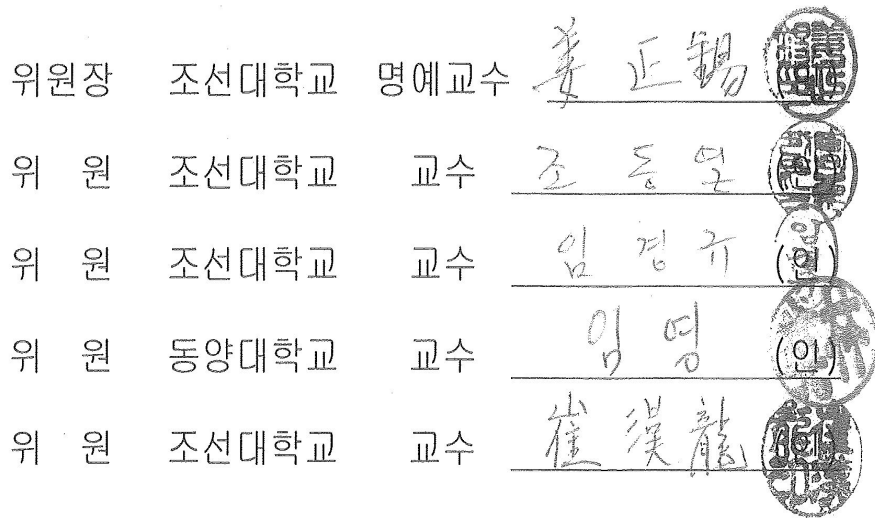 위원장 조선대학교 명예교수 姜正錫 (인)
위 원 조선대학교 교수 조동연 (인)
위 원 조선대학교 교수 임경규 (인)
위 원 동양대학교 교수 임영 (인)
위 원 조선대학교 교수 崔漢龍 (인)